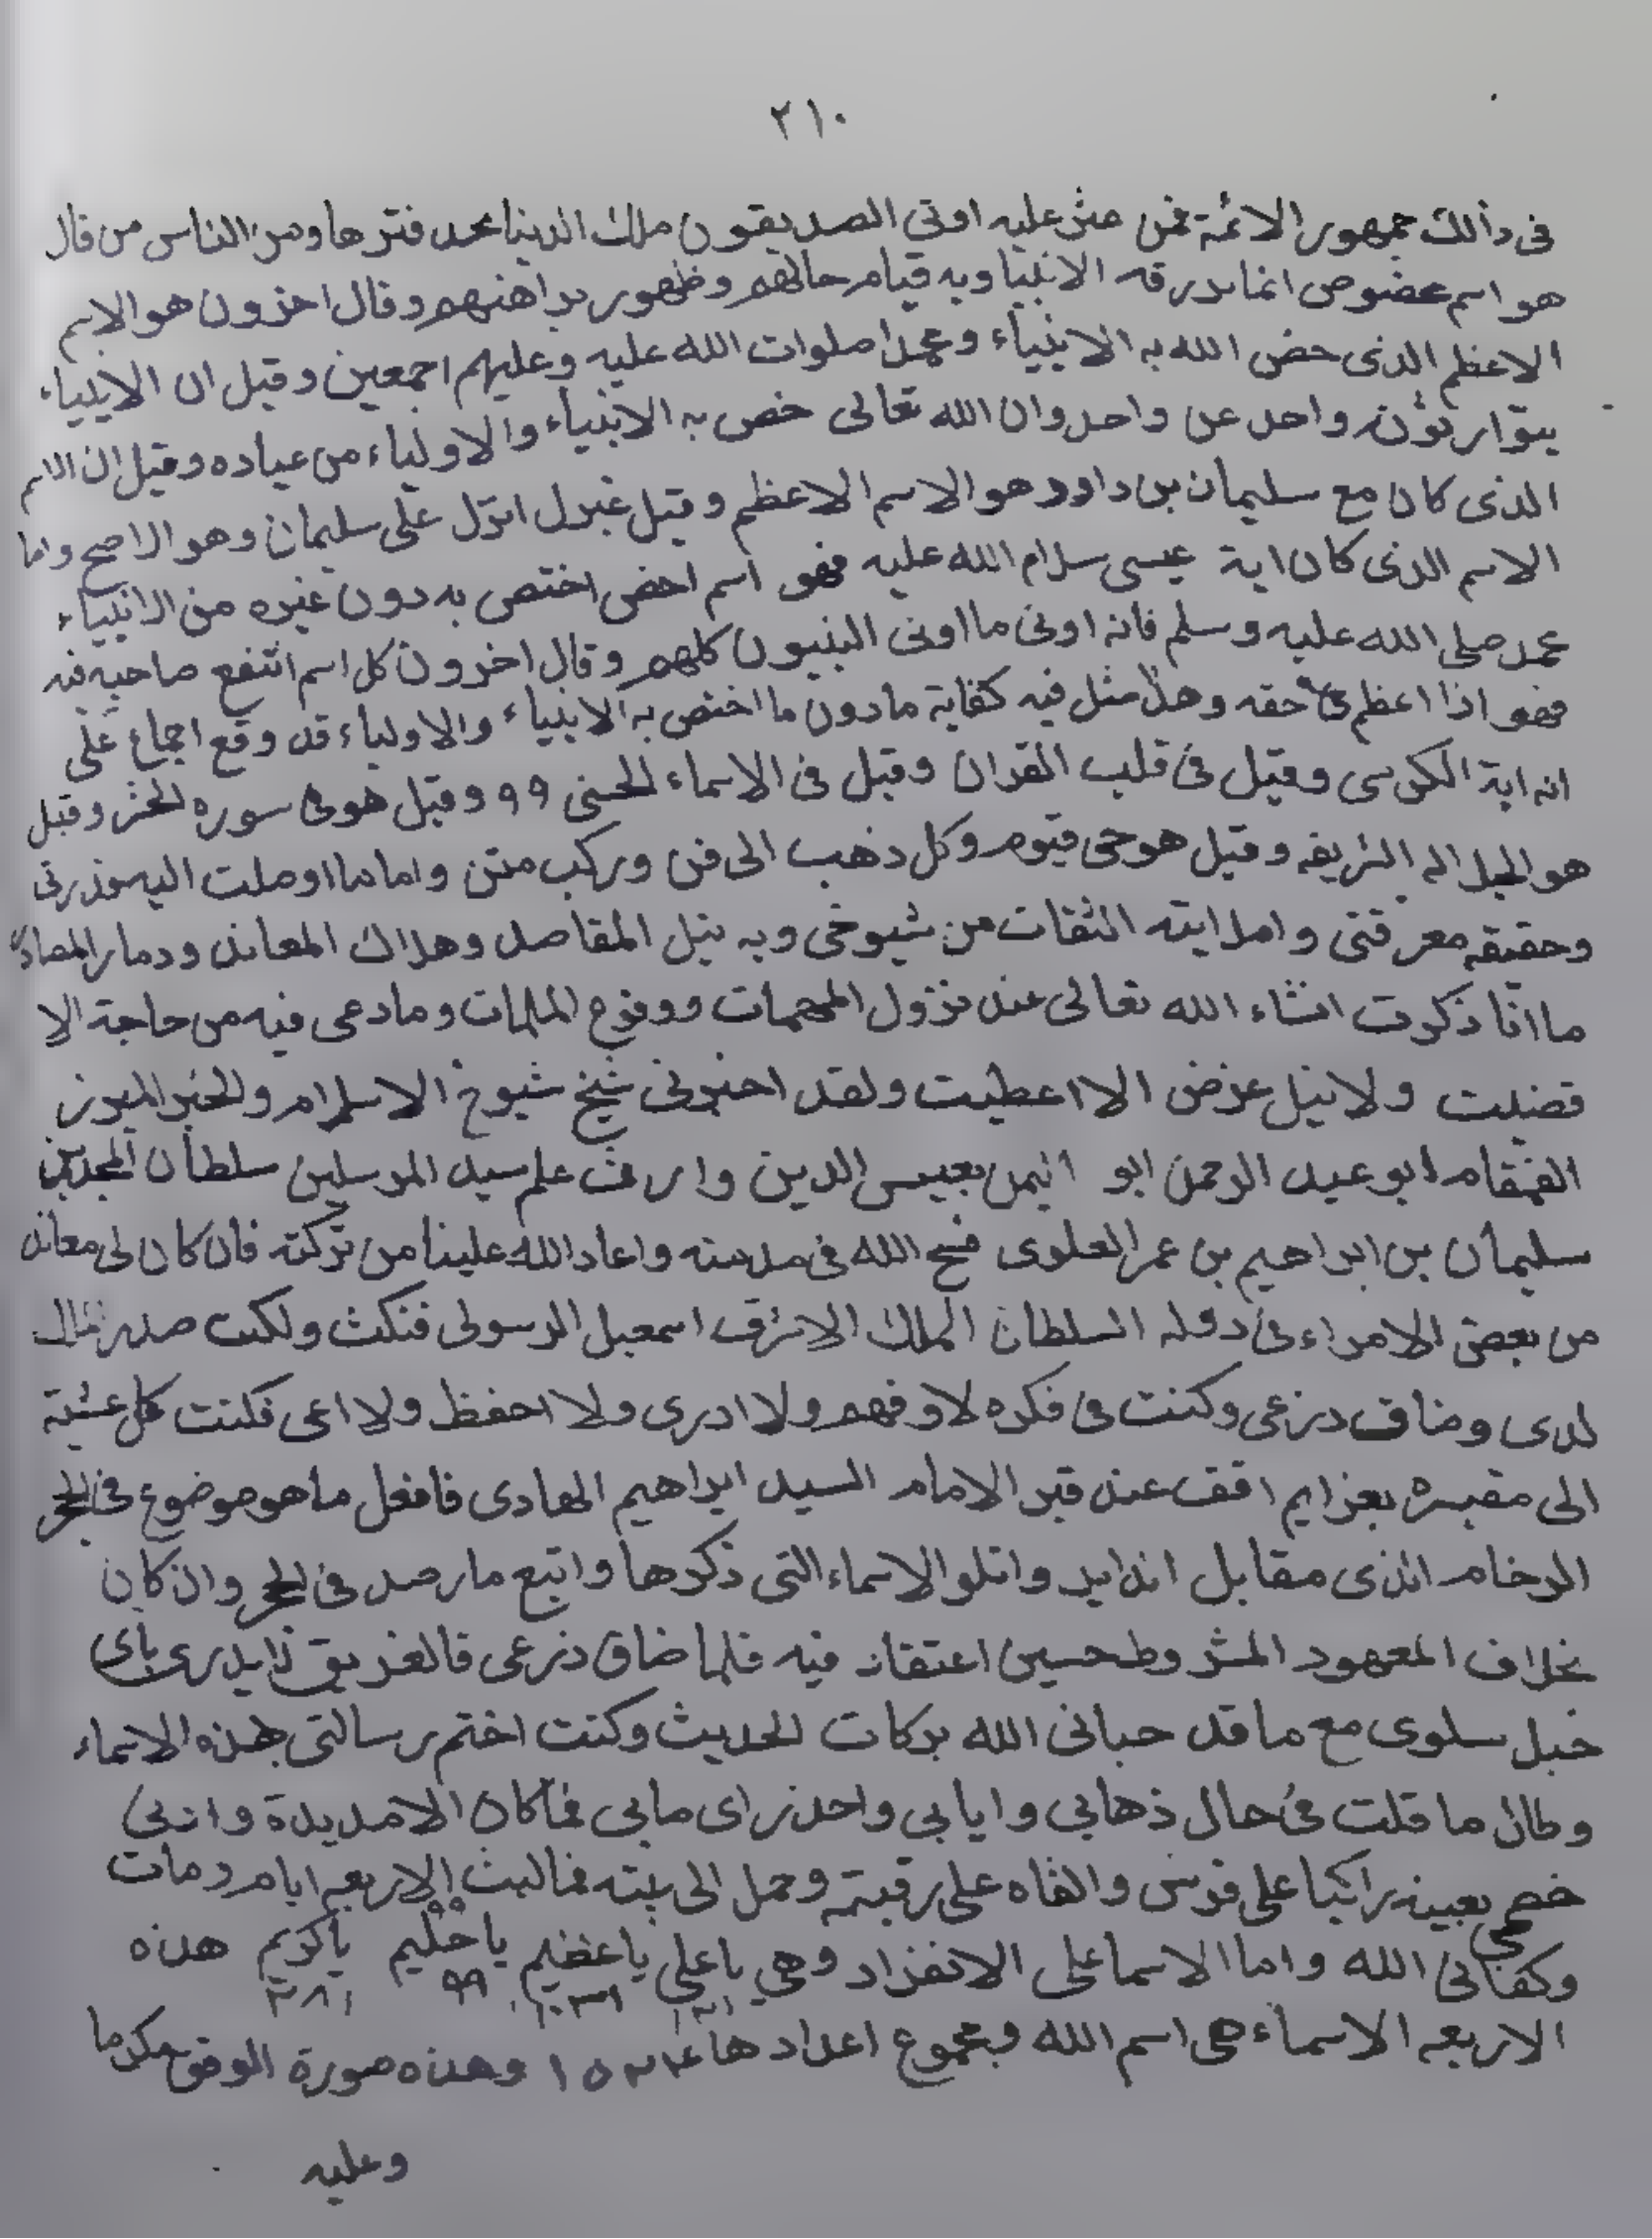 ٢١٠
فى ذالك جمهور الائمة فمن عثر عليه اوتي الصديقون ملك الدينا ومن الناس من قال
هو اسم الانبيا وبه قيام حالهم وظهور براهنهم وقال اخرون هو الاسم
الاعظم الذى خص الله به الانبياء ومحمدا صلوات الله عليه وعليهم اجمعين وقيل ان الانبياء
يتوارثونه واحد عن واحد وان الله تعالى خص به الانبياء والاولياء من عباده وقيل ان الاسم
الذى كان مع سليمان بن داود هو الاسم الاعظم وقيل انزل على سليمان وهو الاصح واما
الاسم الذى كان اية عيسى سلام الله عليه فهو اسم اخص اختص به دون غيره من الانبياء
محمد صلى الله عليه وسلم فانه اوتى ما اوتى النبيون كلهم وقال اخرون كل اسم انتفع صاحبه فيه
فهو اذا اعظم فى حقه وهذا مثل فيه كفاية مادون ما اختص به الانبياء والاولياء قد وقع اجماع على
انه اية الكرسى وقيل فى قلب القران وقيل فى الاسماء الحسنى ٩٩ وقيل هو فى سوره الحشر وقيل
هو الشريفه وقيل هو حى قيوم وكل ذهب الى فن وركب متن واما ما اوصلت اليه
وحقيقه معرفتى الثقات من شيوخى وبه نيل المقاصد وهلاك المعاند ودمار
ما انا ذكرت انشاء الله تعالى عند نزول المهمات ووقوع الملمات وما دعى فيه من حاجة الا
قضيت ولا نيل عرض الا اعطيت ولقد اخبرنى شيخ شيوخ الاسلام والحبر المبرز
القمقام ابو عبد الرحمن ابو الدين وارث علم سيد المرسلين سلطان
سليمان بن ابراهيم بن عمر العلوى فسح الله فى مدته واعاد الله علينا من تركته قال كان لى معاند
من بعض الامراء فى دوله السلطان الملك الاشرف اسمعيل الرسولى فنكث
لدى وضاق درعى وكنت فى فكره لاوفهم ولا ادرى ولا احفظ ولا اعى فكنت كل عشية
الى مقبره اقف عند قبر الامام السيد ابراهيم الهادى فافعل ما هو موضوع فى الحجر
الرخام الذى مقابل واتلو الاسماء التى ذكرها واتبع ما رصد فى الحجر وان كان
بخلاف المعهود المشروط حسين اعتقاد فيه فلما ضاق ذرعى فالغريق لا يدرى باى
حبل سلوى مع ما قد حبانى الله بركات الحديث وكنت اختم رسالتى بهذه الاسماء
وطال ما قلت فى حال ذهابي وايابي واحد راى مابي فما كان الا مديدة واذ بى
خصمي بعينه راكبا على فرس والقاه على رقبته وحمل الى بيته فما لبث الا اربعه ايام ومات
وكفانى الله واما الاسما على الانفراد وهي يا علي يا عظيم يا حليم يا كريم هذه
الاربعه الاسماء هى اسم الله ومجموع اعدادها وهذه صورة الوفق
وعليه